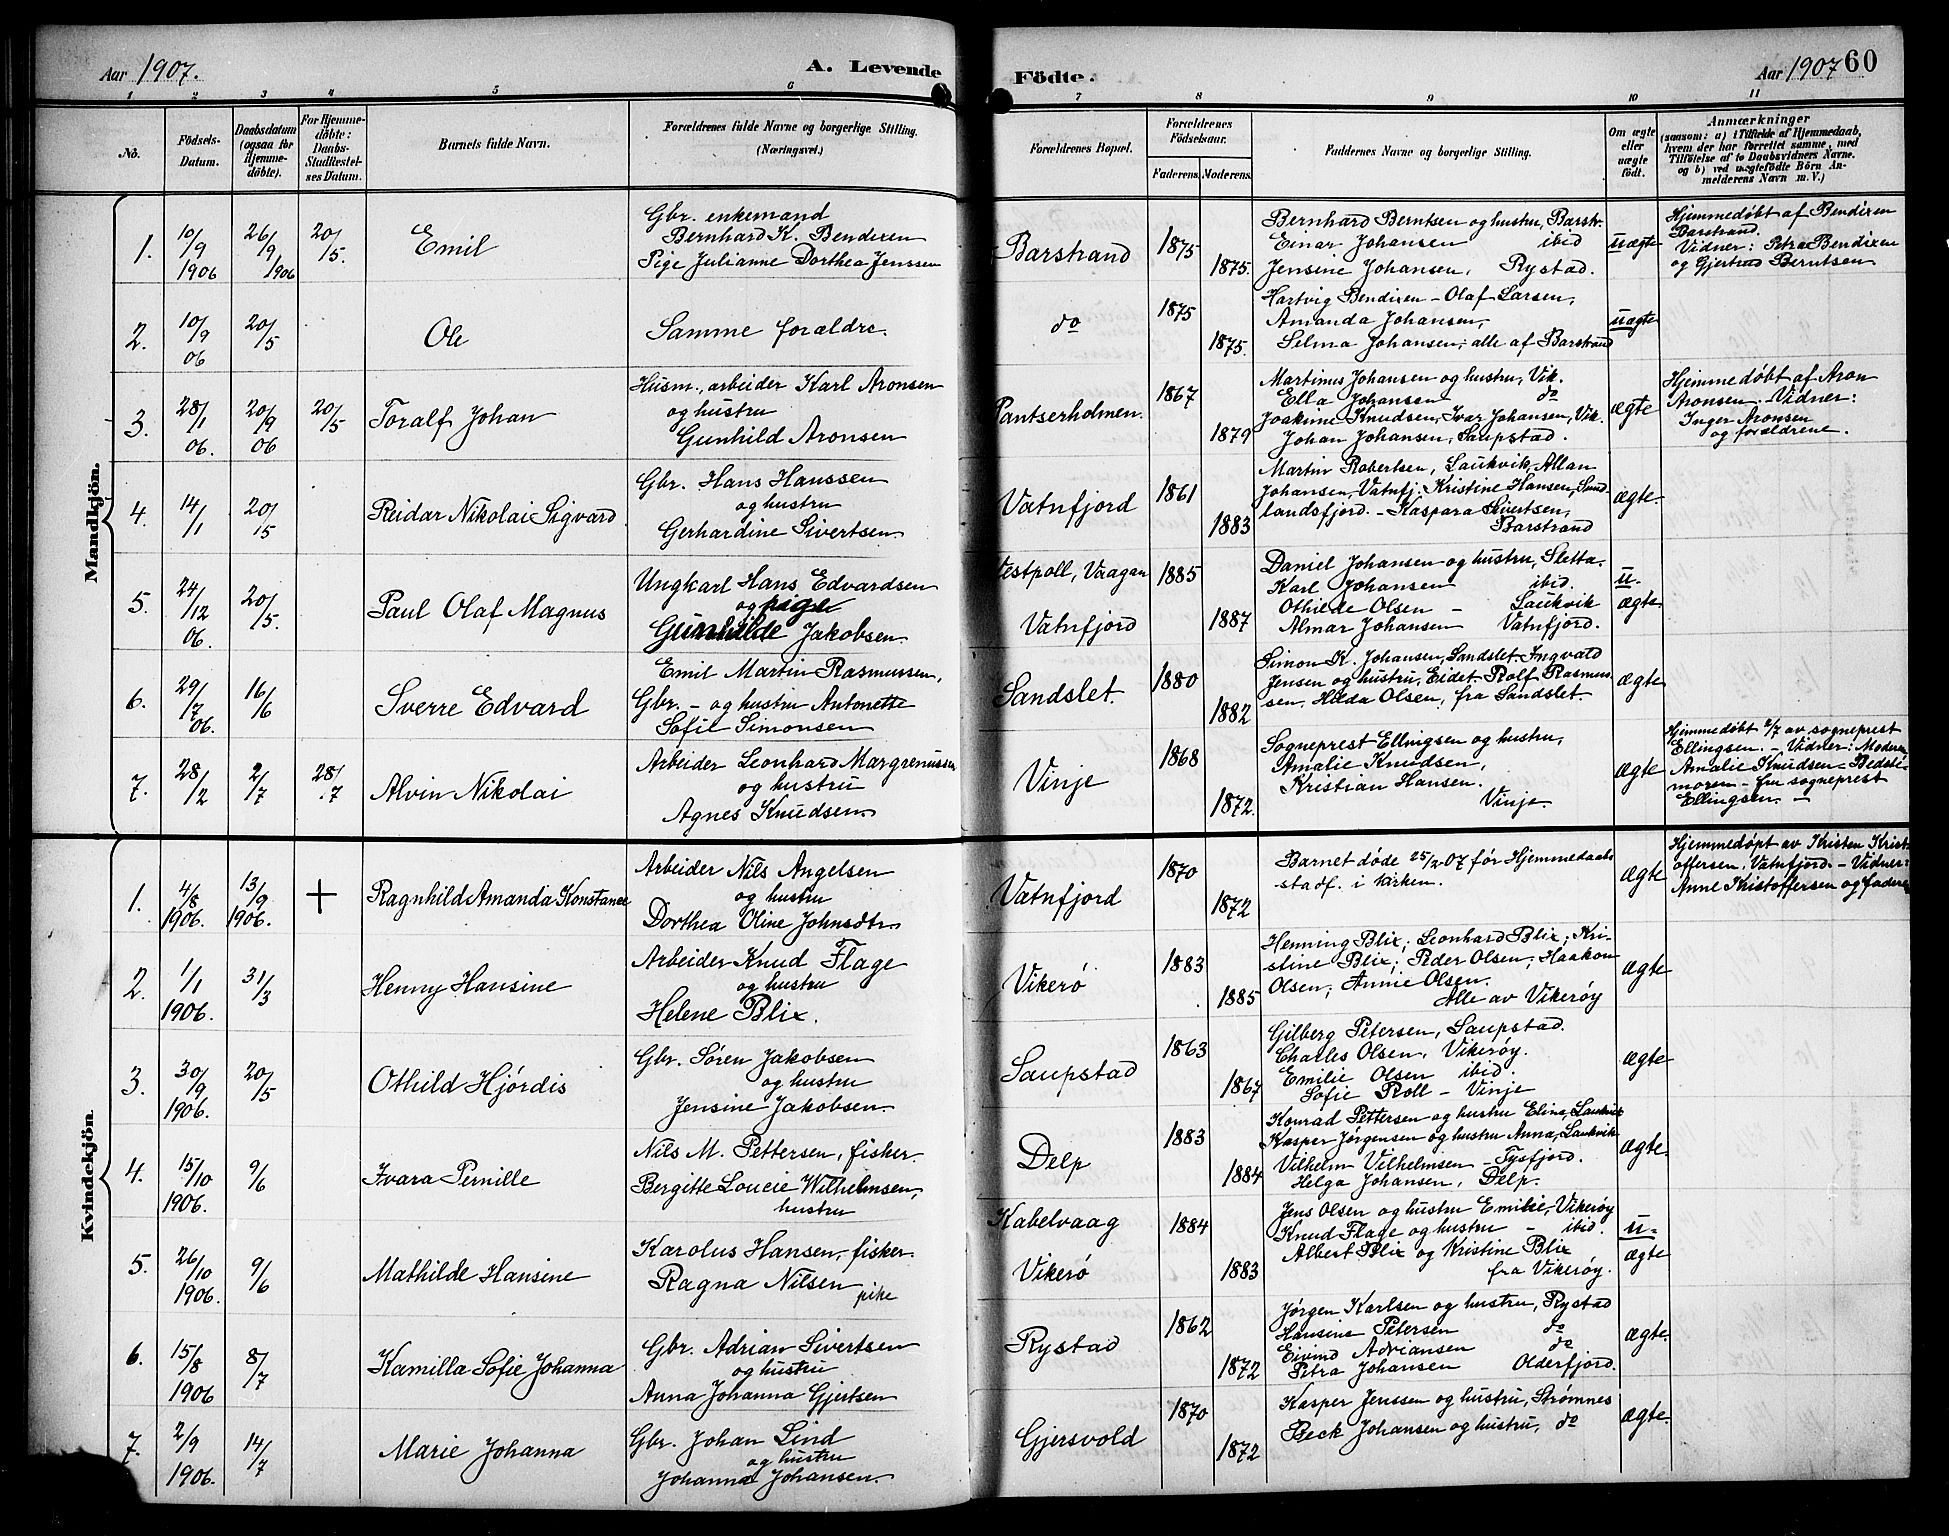 Aar 1907.
A. Levende Födte.
Aar 1907 60
1 2 3 4 5 6 7 8 9 10 11
No.
Födsels-Datum.
Daabsdatum (ogsaa for Hjemmedöbte).
For Hjemmedöbte: Daabs-Stadfæstelses Datum.
Barnets fulde Navn.
Forældrenes fulde Navne og borgerlige Stilling.
(Næringsvei.)
Forældrenes Bopæl.
Forældrenes Födselsaar.
Faderens. Moderens.
Faddernes Navne og borgerlige Stilling.
Om ægte eller uægte født.
Anmærkninger
(saasom: a) i Tilfælde af Hjemmedaab, hvem der har forrettet samme, med Tilföielse af to Daabsvidners Navne, og b) ved uægtefödte Börn Anmelderens Navn m. V.)
Mandkjön.
1. 10/9 1906 26/9 1906 20/5. Emil
Gbr. enkemand
Bernhard K. Bendixen
Pige Julianne Dorthea Jenssen
Barstrand 1875 1875.
Bernhard Berntsen og hustru, Barstr.
Einar Johansen ibid
Jensine Johansen, Rystad.
uægte
Hjemmedøbt af Bendixen
Barstrand.
Vidner: Petra Bendixen
og Gjertrud Berntsen
2. 10/9 06 20/5 Ole
Samme forældre.
do 1875 1875.
Hartvig Bendixen - Olaf Larsen,
Amanda Johansen,
Selma Johansen, alle af Barstrand
uægte
3. 28/1 06. 20/9 06 20/5 Toralf Johan
Husm., arbeider Karl Aronsen
og hustru
Gunhild Aronsen
Pantserholmen. 1867 1879
Martinus Johansen og hustru, Vik.
Ella Johansen do
Joakime Knudsen, Ivar Johansen, Vik.
Johan Johansen, Saupstad.
ægte
Hjemmedøbt af Aron
Aronsen. Vidner:
Inger Aronsen
og forældrene.
4. 14/1 20/5 Reidar Nikolai Sigvard
Gbr. Hans Hanssen
og hustru
Gerhardine Sivertsen.
Vatnfjord 1861 1883
Martin Robertsen, Laukvik, Allan
Johansen, Vatnfj. Kristine Hansen, Sund-
landsfjord. - Kaspara Sivertsen,
Barstrand
ægte.
5. 24/12 06. 20/5. Paul Olaf Magnus
Ungkarl Hans Edvardsen
og pige
Gunhilde Jakobsen.
Vestpoll, Vaagan 1885
Vatnfjord 1887
Daniel Johansen og hustru, Sletta.
Karl Johansen ibid.
Othilde Olsen - Laukvik
Almar Johansen Vatnfjord.
u-ægte
6. 29/7 06. 16/6 Sverre Edvard
Emil Martin Rasmussen,
Gbr. - og hustru Antonette
Sofie Simonsen
Sandslet. 1880 1882
Simon K. Johansen, Sandslet. Ingvald
Jensen og hustru, Eidet. Rolf Rasmus-
sen, Hilda Olsen, fra Sandslet.
ægte
7. 28/2 2/7 28/7 Alvin Nikolai
Arbeider Leonhard Margrenussen
og hustru
Agnes Knudsen.
Vinje 1868 1872.
Sogneprest Ellingsen og hustru,
Amalie Knudsen,
Kristian Hansen.
Vinje.
ægte
Hjemmedøbt 2/7 av sogneprest
Ellingsen. - Vidner: Moderen
Amalie Knudsen - Bedste-
moren - fru sogneprest
Ellingsen. -
Kvindekjön.
1. 4/8 1906. 13/9 1906. + Ragnhild Amanda Konstance
Arbeider Nils Angelsen
og hustru
Dorthea Oline Johnsdtr
Vatnfjord 1870 1872
Barnet døde 25/2 07 før Hjemmedaabs
stadf. i kirken.
ægte
Hjemmedøpt av Kristen Krist-
offersen, Vatnfjord. - Vidner:
Anne Kristoffersen og faderen
2. 1/1 1906. 31/3 Henny Hansine
Arbeider Knud Flage
og hustru
Helene Blix.
Vikerø 1883 1885
Henning Blix; Leonhard Blix; Kri-
stine Blix; Peder Olsen; Haakon
Olsen; Annie Olsen.
Alle av Vikerøy
ægte
3. 30/9 1906. 20/5 Othild Hjørdis
Gbr. Søren Jakobsen
og hustru
Jensine Jakobsen.
Saupstad 1863 1867
Gilberg Petersen, Saupstad.
Charles Olsen, Vikerøy.
Emilie Olsen ibid.
Sofie Roll - Vinje
ægte
4. 15/10 1906. 9/6 Ivara Pernille
Nils M. Pettersen, fisker.
Bergitte Loucie Wilhelmsen,
hustru
Delp 1883 1884
Konrad Pettersen og hustru Elina, Laukvik
Kasper Jørgensen og hustru Anna, Laukvik
Vilhelm Vilhelmsen - Tysfjord.
Helga Johansen, Delp.
ægte.
5. 26/10 1906. 9/6 Mathilde Hansine
Karolus Hansen, fisker.
Ragna Nilsen
pike
Kabelvaag 1884
Vikerø 1883
Jens Olsen og hustru Emilie, Vikerøy
Knud Flage og hustru - ibid.
Albert Blix og Kristine Blix
fra Vikerøy.
u-ægte
6. 15/8 1906 8/7 Kamilla Sofie Johanna
Gbr. Adrian Sivertsen
og hustru
Anna Johanna Gjertsen
Rystad 1862 1872
Jørgen Karlsen og hustru, Rystad
Hansine Petersen do
Eivind Adriansen do
Petra Johansen Olderfjord.
ægte.
7. 2/9 1906. 14/7 Marie Johanna
Gbr. Johan Lind
og hustru
Johanna Johansen.
Gjersvold 1870 1872
Kasper Jenssen og hustru, Strømnes
Beck Johansen og hustru, do
ægte.